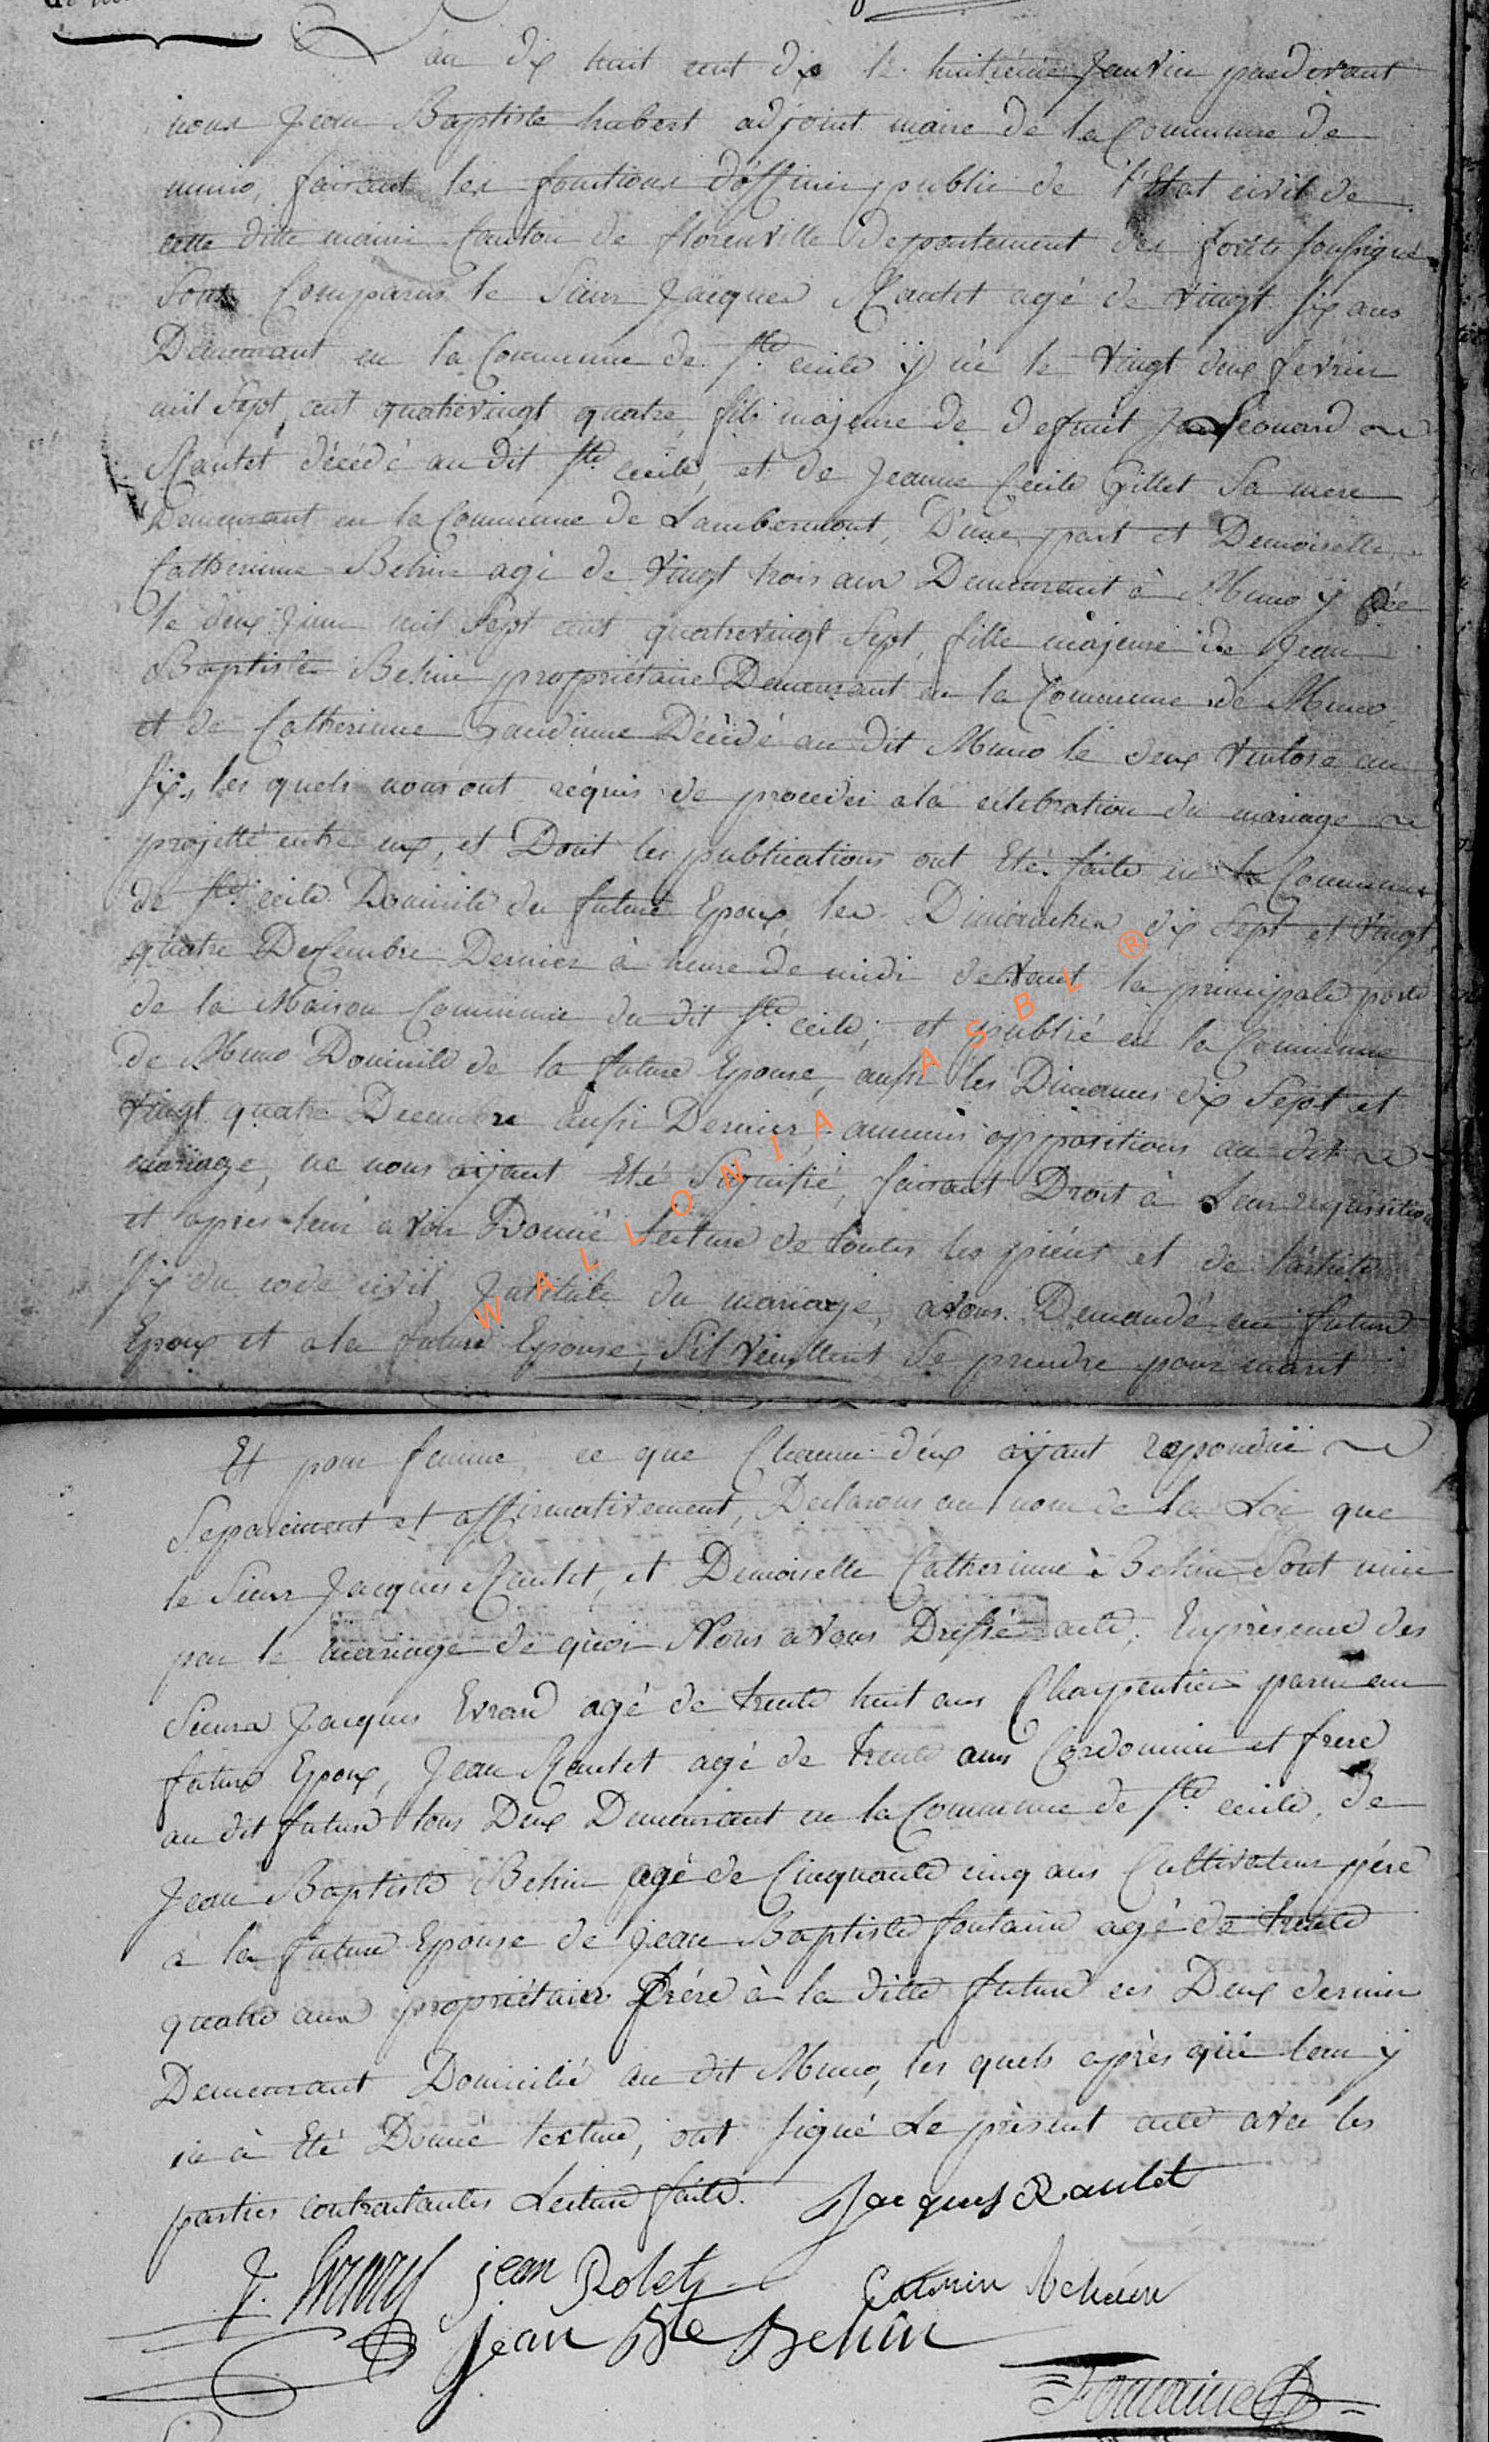 L'an dix huit cent dix le huitieme Janvier pardevant
nous Jean Baptiste hubert adjoint maire de la Commune de
muno, faisant les fonctions d'officier public de l'Etat civil de
cette ditte mairie Canton de florenville departement des forêts soussigné
Sont Comparus le Sieur Jacques Rautet agé de vingt six ans
Demeurant en la Commune de Ste cecile y né le vingt deux fevrier
mil Sept cent quatrevingt quatre, fils majeure de defunt Leonard
Rautet décedé au dit Ste cecile, et de Jeanne Cecile Gillet Sa mere
Demeurant en la Commune de Lambermont, D'une part et Demoiselle
Catherinne Behin agé de vingt trois ans Demeurant à Muno y née
le deux Juin mil Sept cent quatrevingt Sept, fille majeure de Jean
Baptiste Behin propriétaire Demeurant en la Commune de Muno,
et de Catherinne Gaudinne Décédé au dit Muno le deux ventose an
six, les quels nous ont réquis de proceder a la célébration du mariage
projetté entre eux, et Dont les publications ont Eté faite en la Commune
de Ste cecile Domicile du future Epoux, les Dimanches dix Sept et vingt
quatre Decembre Dernier à heure de midi devant la principale porte
de la Maison Commune du dit Ste cecile; et publié en la Commune
de Muno Domicile de la future Epouse, aussi les Dimances dix Sept et
vingt quatre Decembre aussi Dernier, aucunes oppositions au dit
mariage, ne nous aÿant Eté Signifié, faisant Droit à Leur requisition
et apres leur avoir Donné lecture de toutes les pièces et de
six du code civil Intitulé du mariage, avons Demandé au future
Epoux et a la future Epouse, S'il veullent Se prendre pour marit
Et pour femme, ce que Chacun d'eux aÿant repondu
Separement et affirmativement, Declarons au nom de la Loi que
le Sieur Jacques Rautet, et Demoiselle Catherinne Behin Sont unie
par le mariage de quoi Nous avons Dressé acte, En présence des
Sieurs Jacques Evrard agé de trente huit ans Charpentier parin au
future Epoux, Jean Rautet agé de trente ans Cordonnier et frere
au dit future tous Deux Demeurant en la Commune de Ste cecile, de
Jean Baptiste Behin agé de Cinquante cinq ans Cultivateur pére
a la future Epouse de Jean Baptiste fontaine agé de trente
quatre ans propriétaire frére à la ditte future ces Deux dernier
Demeurant Domicilié au dit Muno, les quels après qu'il leur y
en à Eté Donné lecture, ont signé Le présent acte avec les
parties contractantes Lecture faite. Jacques Raulet
J. Evrard jean Rolet Catrin behein
jean Bte Behin
Fontaine
WALLONIA ASBL ®